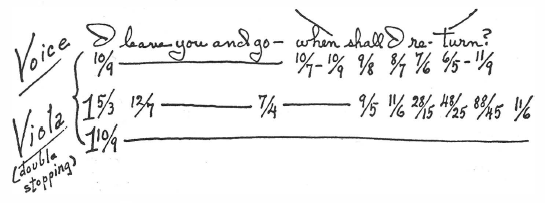 Voice
I leave you and go – when shall I re-turn?
10/9 10/7 – 10/9 9/8 8/7 7/6 6/5 – 11/9
Viola
(double stopping)
1 5/3 12/7 7/4 9/5 11/6 28/15 48/25 88/45 11/6
1 10/9